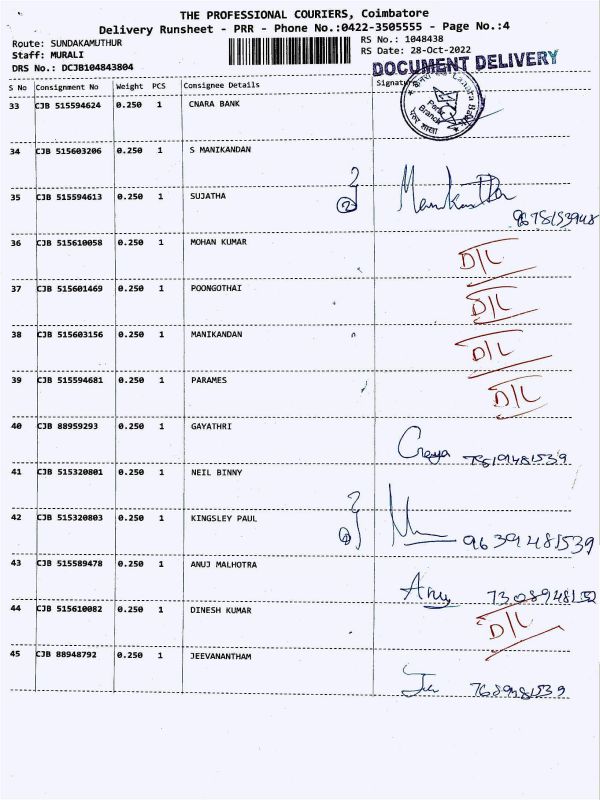 THE PROFESSIONAL COURIERS, Coimbatore
Delivery Runsheet - PRR - Phone No.:0422-3505555 - Page No.:4
Route: SUNDAKAMUTHUR
RS No.: 1048438
Staff: MURALI
RS Date: 28-Oct-2022
DRS No.: DCJB104843804
DOCUMENT DELIVERY
S No Consignment No Weight PCS Consignee Details Signature
33 CJB 515594624 0.250 1 CNARA BANK
Canara Bank
Perur Branch
34 CJB 515603206 0.250 1 S MANIKANDAN
35 CJB 515594613 0.250 1 SUJATHA
2 Manikantta
9678153948
36 CJB 515610058 0.250 1 MOHAN KUMAR
D/L
37 CJB 515601469 0.250 1 POONGOTHAI
D/L
38 CJB 515603156 0.250 1 MANIKANDAN
D/L
39 CJB 515594681 0.250 1 PARAMES
D/L
40 CJB 88959293 0.250 1 GAYATHRI
Gaya
41 CJB 515320801 0.250 1 NEIL BINNY
42 CJB 515320803 0.250 1 KINGSLEY PAUL
9639481539
43 CJB 515589478 0.250 1 ANUJ MALHOTRA
Anuj
44 CJB 515610082 0.250 1 DINESH KUMAR
D/L
45 CJB 88948792 0.250 1 JEEVANANTHAM
7689481539